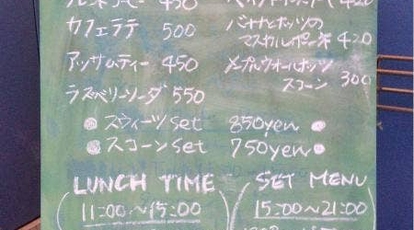 カフェラテ 500
バナナとナッツの
マスカルポーネ 420
アッサムティー 450
メープルウォールナッツ
スコーン 300
ラズベリーソーダ 550
スウィーツset 850yen
スコーンset 750yen
LUNCH TIME
11:00~15:00
SET MENU
15:00~21:00